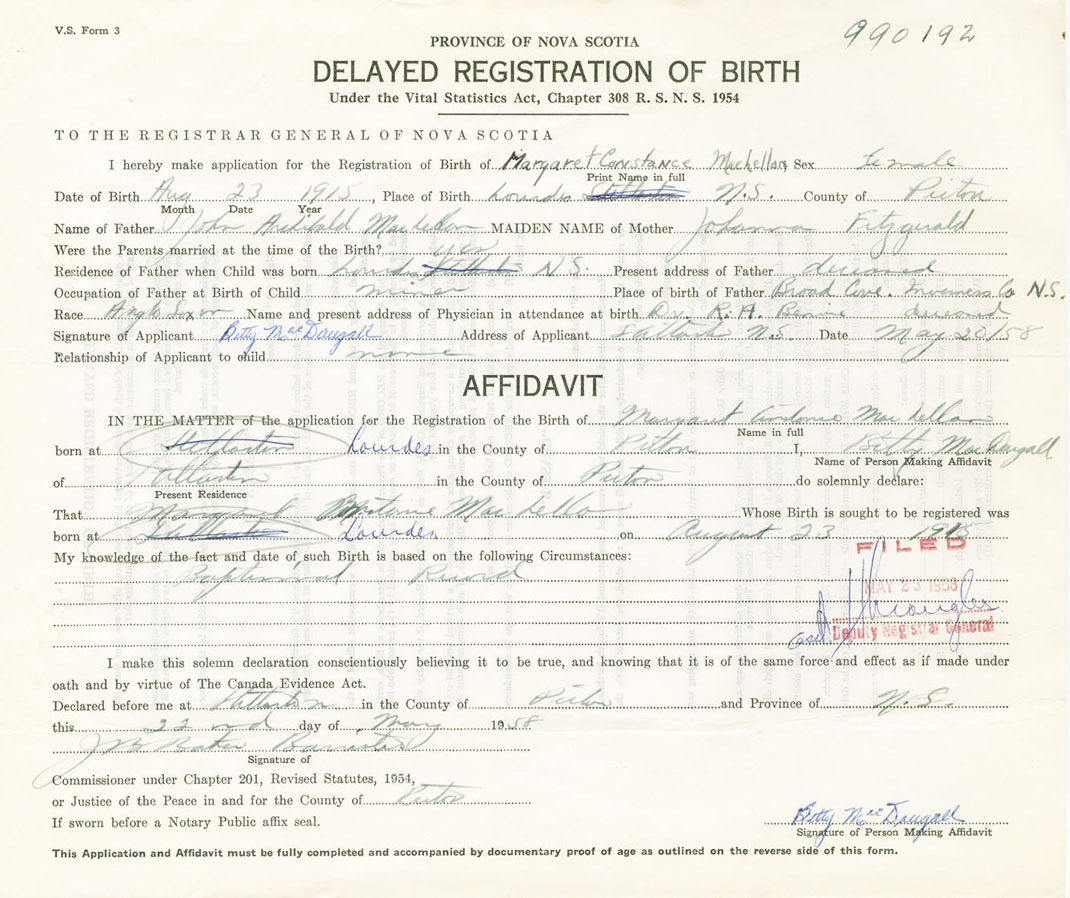 V.S. Form 3
990192
PROVINCE OF NOVA SCOTIA
DELAYED REGISTRATION OF BIRTH
Under the Vital Statistics Act, Chapter 308 R. S. N. S. 1954
TO THE REGISTRAR GENERAL OF NOVA SCOTIA
I hereby make application for the Registration of Birth of Margaret Constance MacLellan Sex Female
Print Name in full
Date of Birth Aug 23 1915, Place of Birth Lourdes Stellarton N.S. County of Pictou
Month Date Year
Name of Father John Archibald MacLellan MAIDEN NAME of Mother Johanna Fitzgerald
Were the Parents married at the time of the Birth? yes
Residence of Father when Child was born Lourdes Stellarton N.S. Present address of Father deceased
Occupation of Father at Birth of Child miner Place of birth of Father Broad Cove. Inverness Co N.S.
Race Anglo Saxon Name and present address of Physician in attendance at birth Dr. R. H. deceased
Signature of Applicant Betty MacDougall Address of Applicant Stellarton N.S. Date May 20/58
Relationship of Applicant to child none
AFFIDAVIT
IN THE MATTER of the application for the Registration of the Birth of Margaret MacLellan
Name in full
born at Stellarton Lourdes in the County of Pictou I, Betty MacDougall
Name of Person Making Affidavit
of Stellarton in the County of Pictou do solemnly declare:
Present Residence
That Margaret MacLellan Whose Birth is sought to be registered was
born at Stellarton Lourdes on August 23 1915
My knowledge of the fact and date of such Birth is based on the following Circumstances:
Baptismal Record
FILED
MAY 23 1958
Deputy Registrar General
I make this solemn declaration conscientiously believing it to be true, and knowing that it is of the same force and effect as if made under
oath and by virtue of The Canada Evidence Act.
Declared before me at Stellarton in the County of Pictou and Province of N.S.
this 22nd day of May 1958
J B Baker Barrister
Signature of
Commissioner under Chapter 201, Revised Statutes, 1954,
or Justice of the Peace in and for the County of Pictou
If sworn before a Notary Public affix seal.
Betty MacDougall
Signature of Person Making Affidavit
This Application and Affidavit must be fully completed and accompanied by documentary proof of age as outlined on the reverse side of this form.